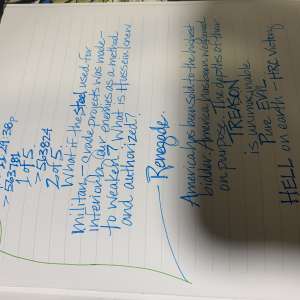 > 563781
1 of 5
> 563824
2 of 5
What if the steel used for
military-grade projects was made
to weaken
enemies as a method
What is Hussein knew
and authorized?
- Renegade.
America has been sold to the highest
bidder. America has been weakened
on purpose. The depths of their
TREASON
is unimaginable
Pure EVIL.
HELL on earth - HRC victory